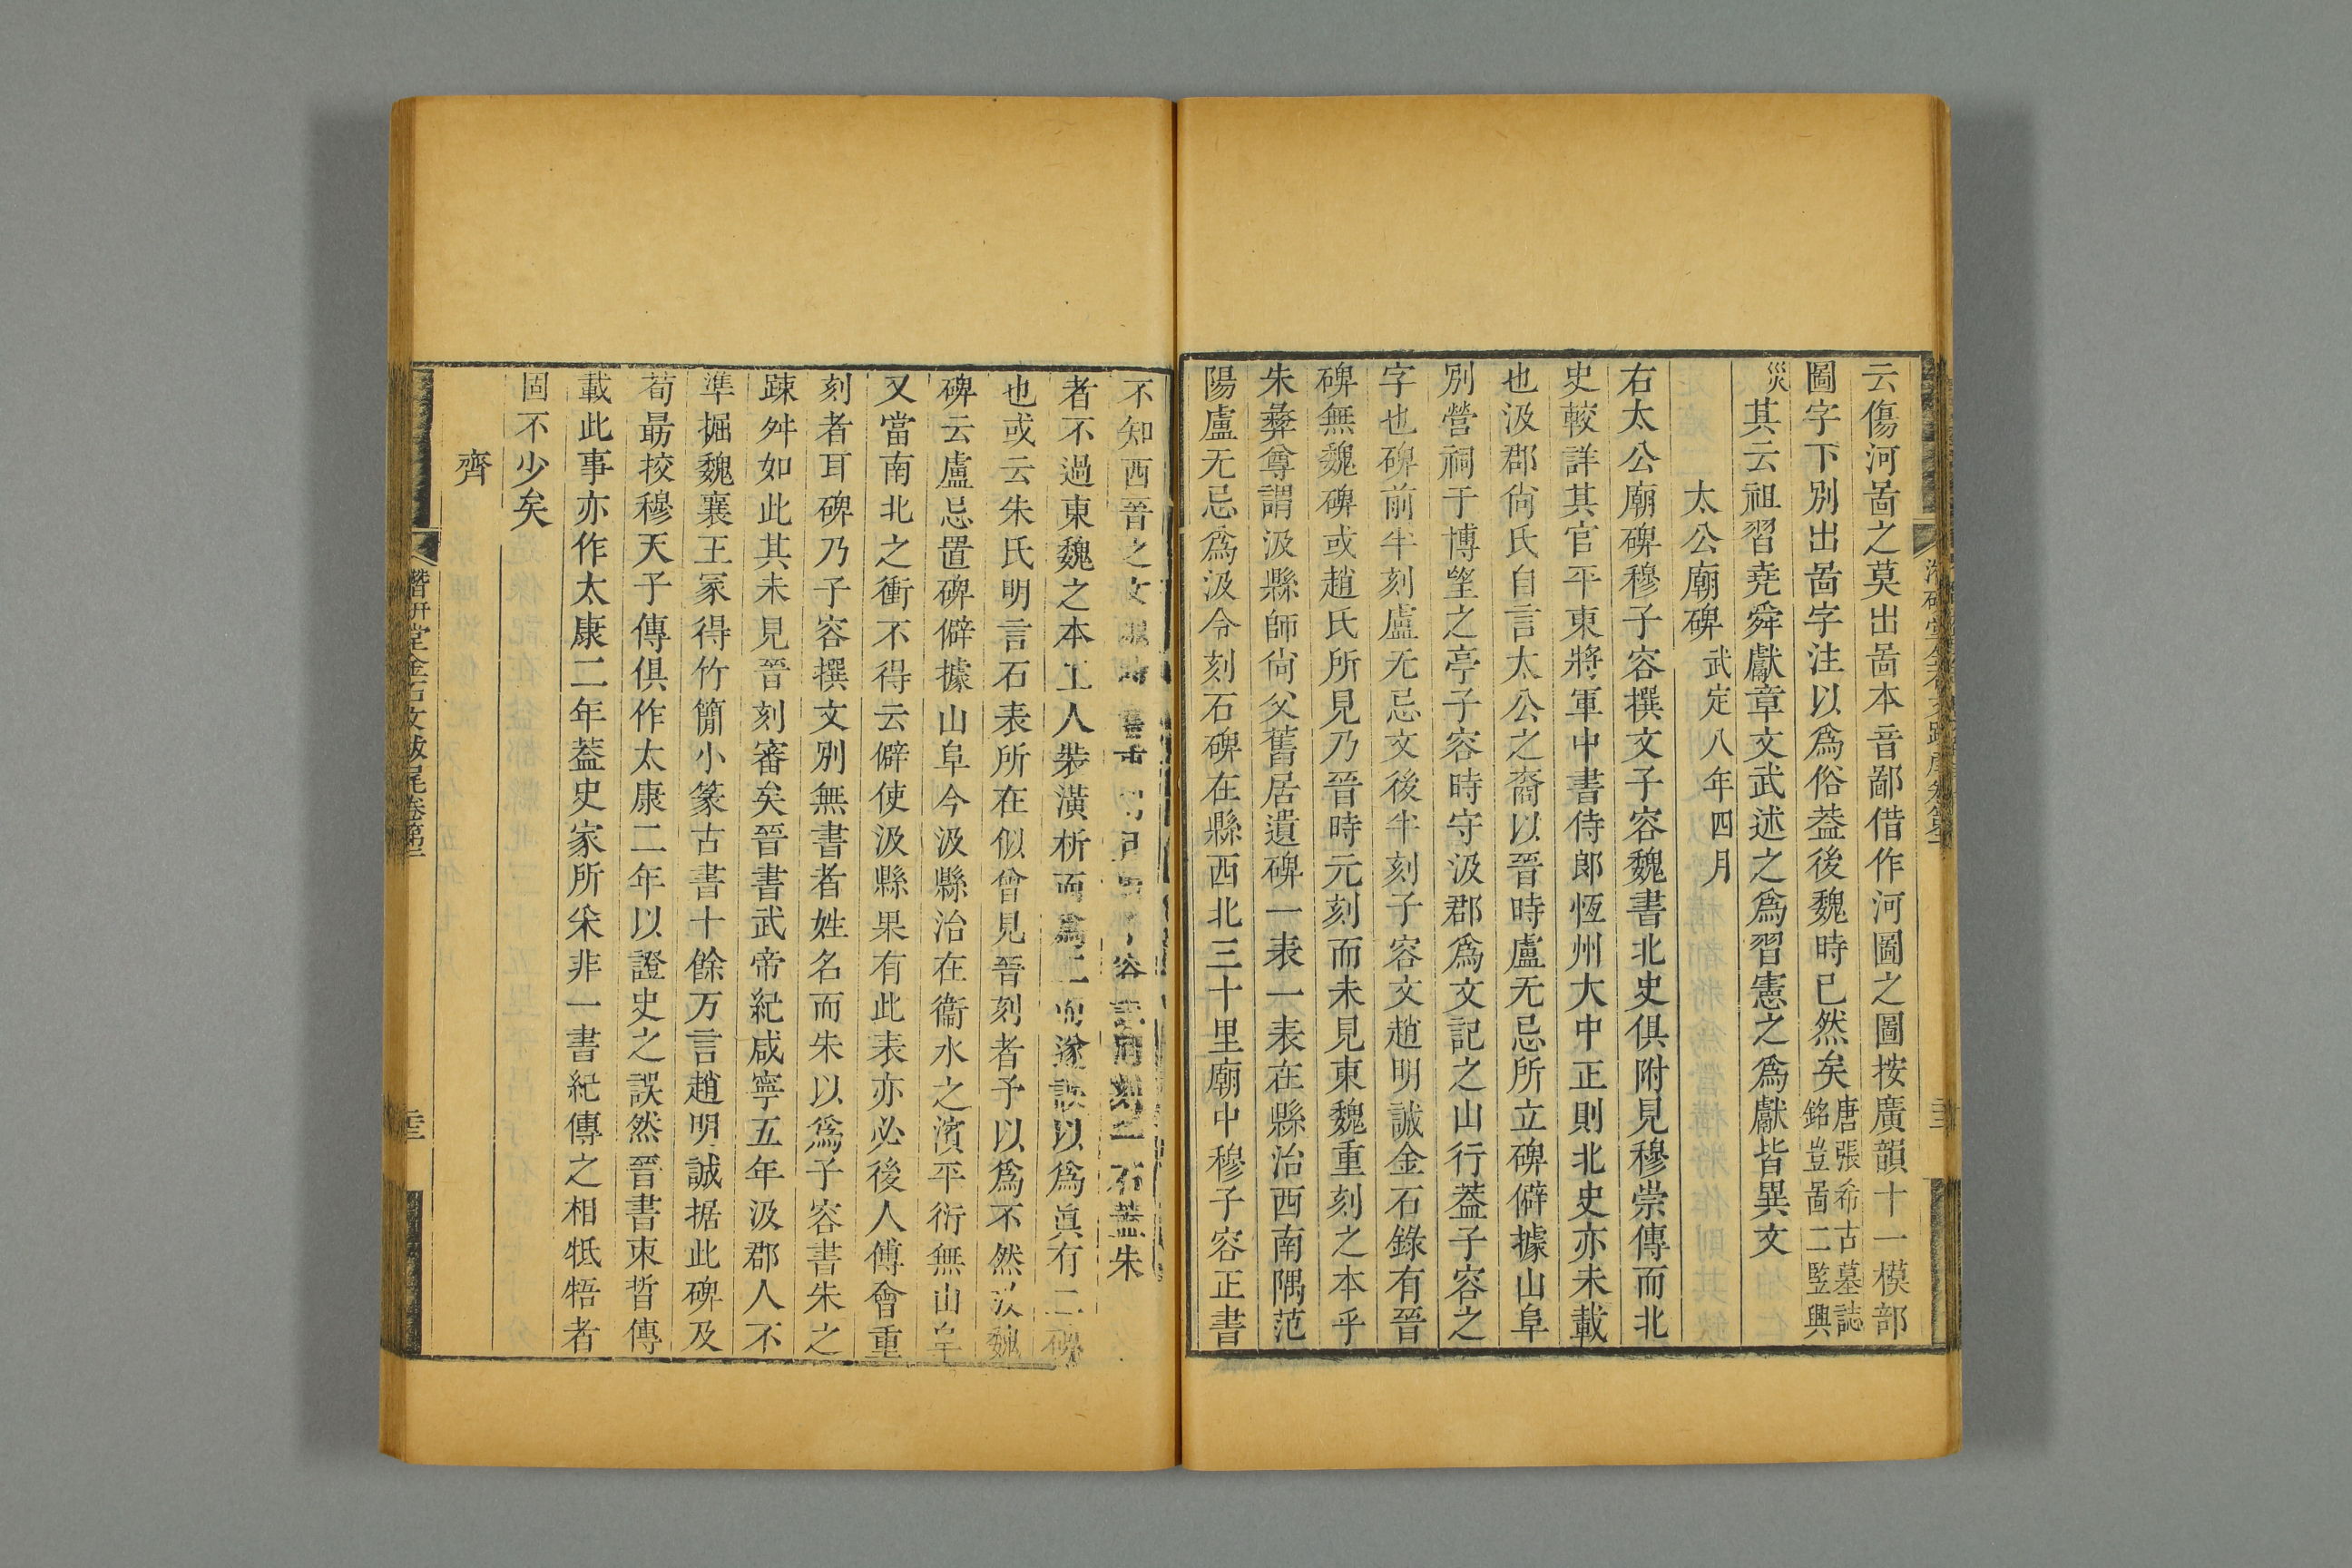 云傷河啚之莫出啚本音鄙借作河圖之圖按廣韻十一模部
圖字下別出啚字注以爲俗葢後魏時已然矣唐張希古墓誌銘豈啚二豎興
災其云祖習堯舜獻章文武述之爲習憲之爲獻皆異文
太公廟碑 武定八年四月
右太公廟碑穆子容撰文子容魏書北史俱附見穆崇傳而北
史較詳其官平東將軍中書侍郎恆州大中正則北史亦未載
也汲郡尙氏自言太公之裔以晉時盧无忌所立碑僻據山阜
別營祠于博望之亭子容時守汲郡爲文記之山行葢子容之
字也碑前半刻盧无忌文後半刻子容文趙明誠金石錄有晉
碑無魏碑或趙氏所見乃晉時元刻而未見東魏重刻之本乎
朱彝尊謂汲縣師尙父舊居遺碑一表一表在縣治西南隅范
陽盧无忌爲汲令刻石碑在縣西北三十里廟中穆子容正書
不知西晉之文容刻一石葢朱
者不過東魏之本工人裝潢析而爲二而遂誤以爲眞有二碑
也或云朱氏明言石表所在似曾見晉刻者予以爲不然汲魏
碑云盧忌置碑僻據山阜今汲縣治在衞水之濱平衍無山阜
又當南北之衝不得云僻使汲縣果有此表亦必後人傅會重
刻者耳碑乃子容撰文別無書者姓名而朱以爲子容書朱之
踈舛如此其未見晉刻審矣晉書武帝紀咸寧五年汲郡人不
準掘魏襄王冢得竹簡小篆古書十餘万言趙明誠据此碑及
荀勗挍穆天子傳俱作太康二年以證史之誤然晉書束晳傳
載此事亦作太康二年葢史家所采非一書紀傳之相牴牾者
固不少矣
齊
潛硏堂金石文跋尾卷第二